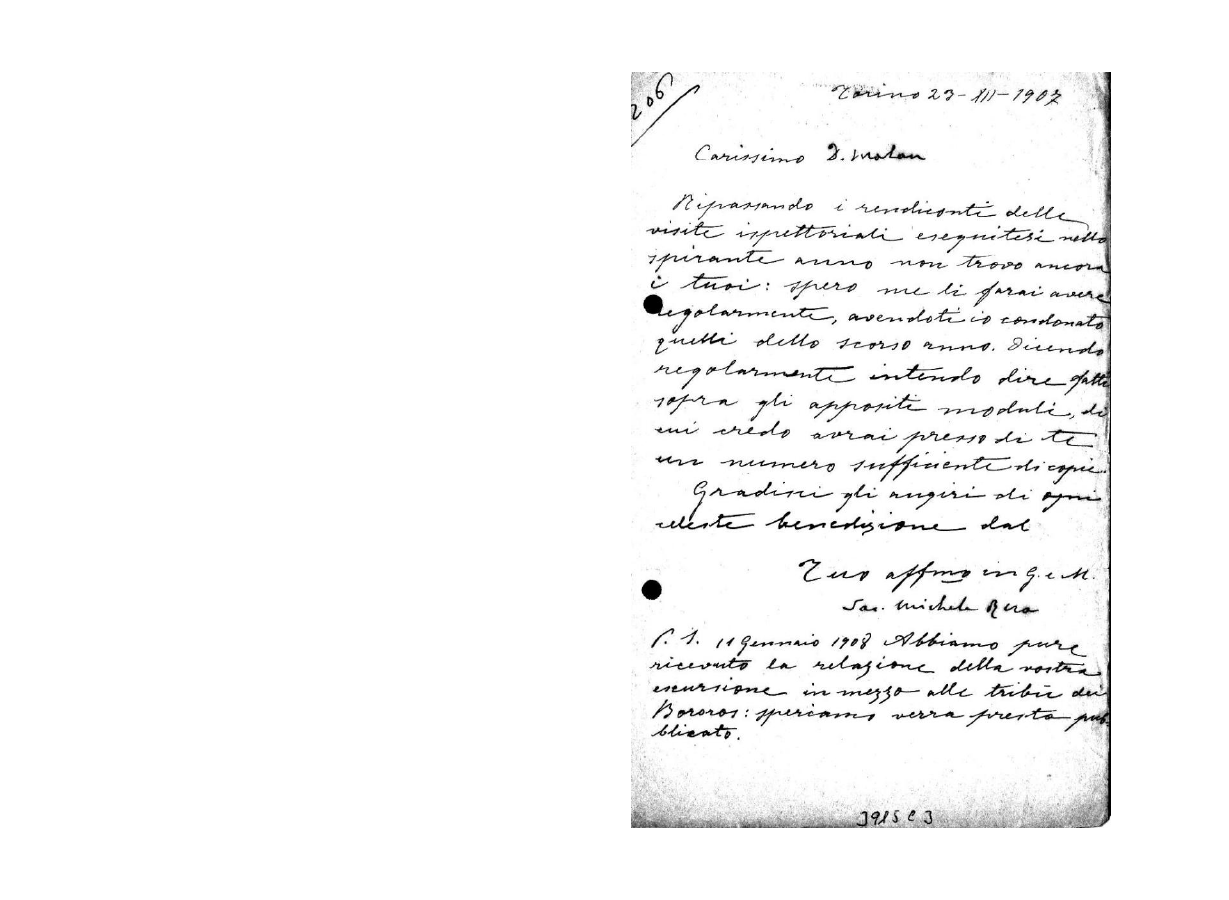 206
Torino 23-XII-1907
Carissimo D. Malan
Ripassando i rendiconti delle
visite ispettoriali eseguitesi nello
spirante anno non trovo ancora
i tuoi: spero me li farai avere
regolarmente, avendoti io condonato
quelli dello scorso anno. Dicendo
regolarmente intendo dire fatti
sopra gli appositi moduli, di
cui credo avrai presso di te
un numero sufficiente di copie.
Gradisci gli auguri di ogni
celeste benedizione dal
Tuo affmo in G. e M.
Sac. Michele Rua
P. S. 11 Gennaio 1908 Abbiamo pure
ricevuto la relazione della vostra
escursione in mezzo alle tribù dei
Bororos: speriamo verra presto pub-
blicato.
3985 C 3